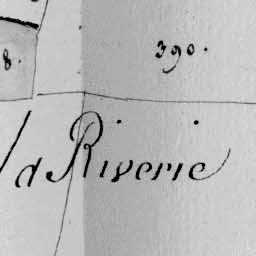 8.
390.
d Riverie